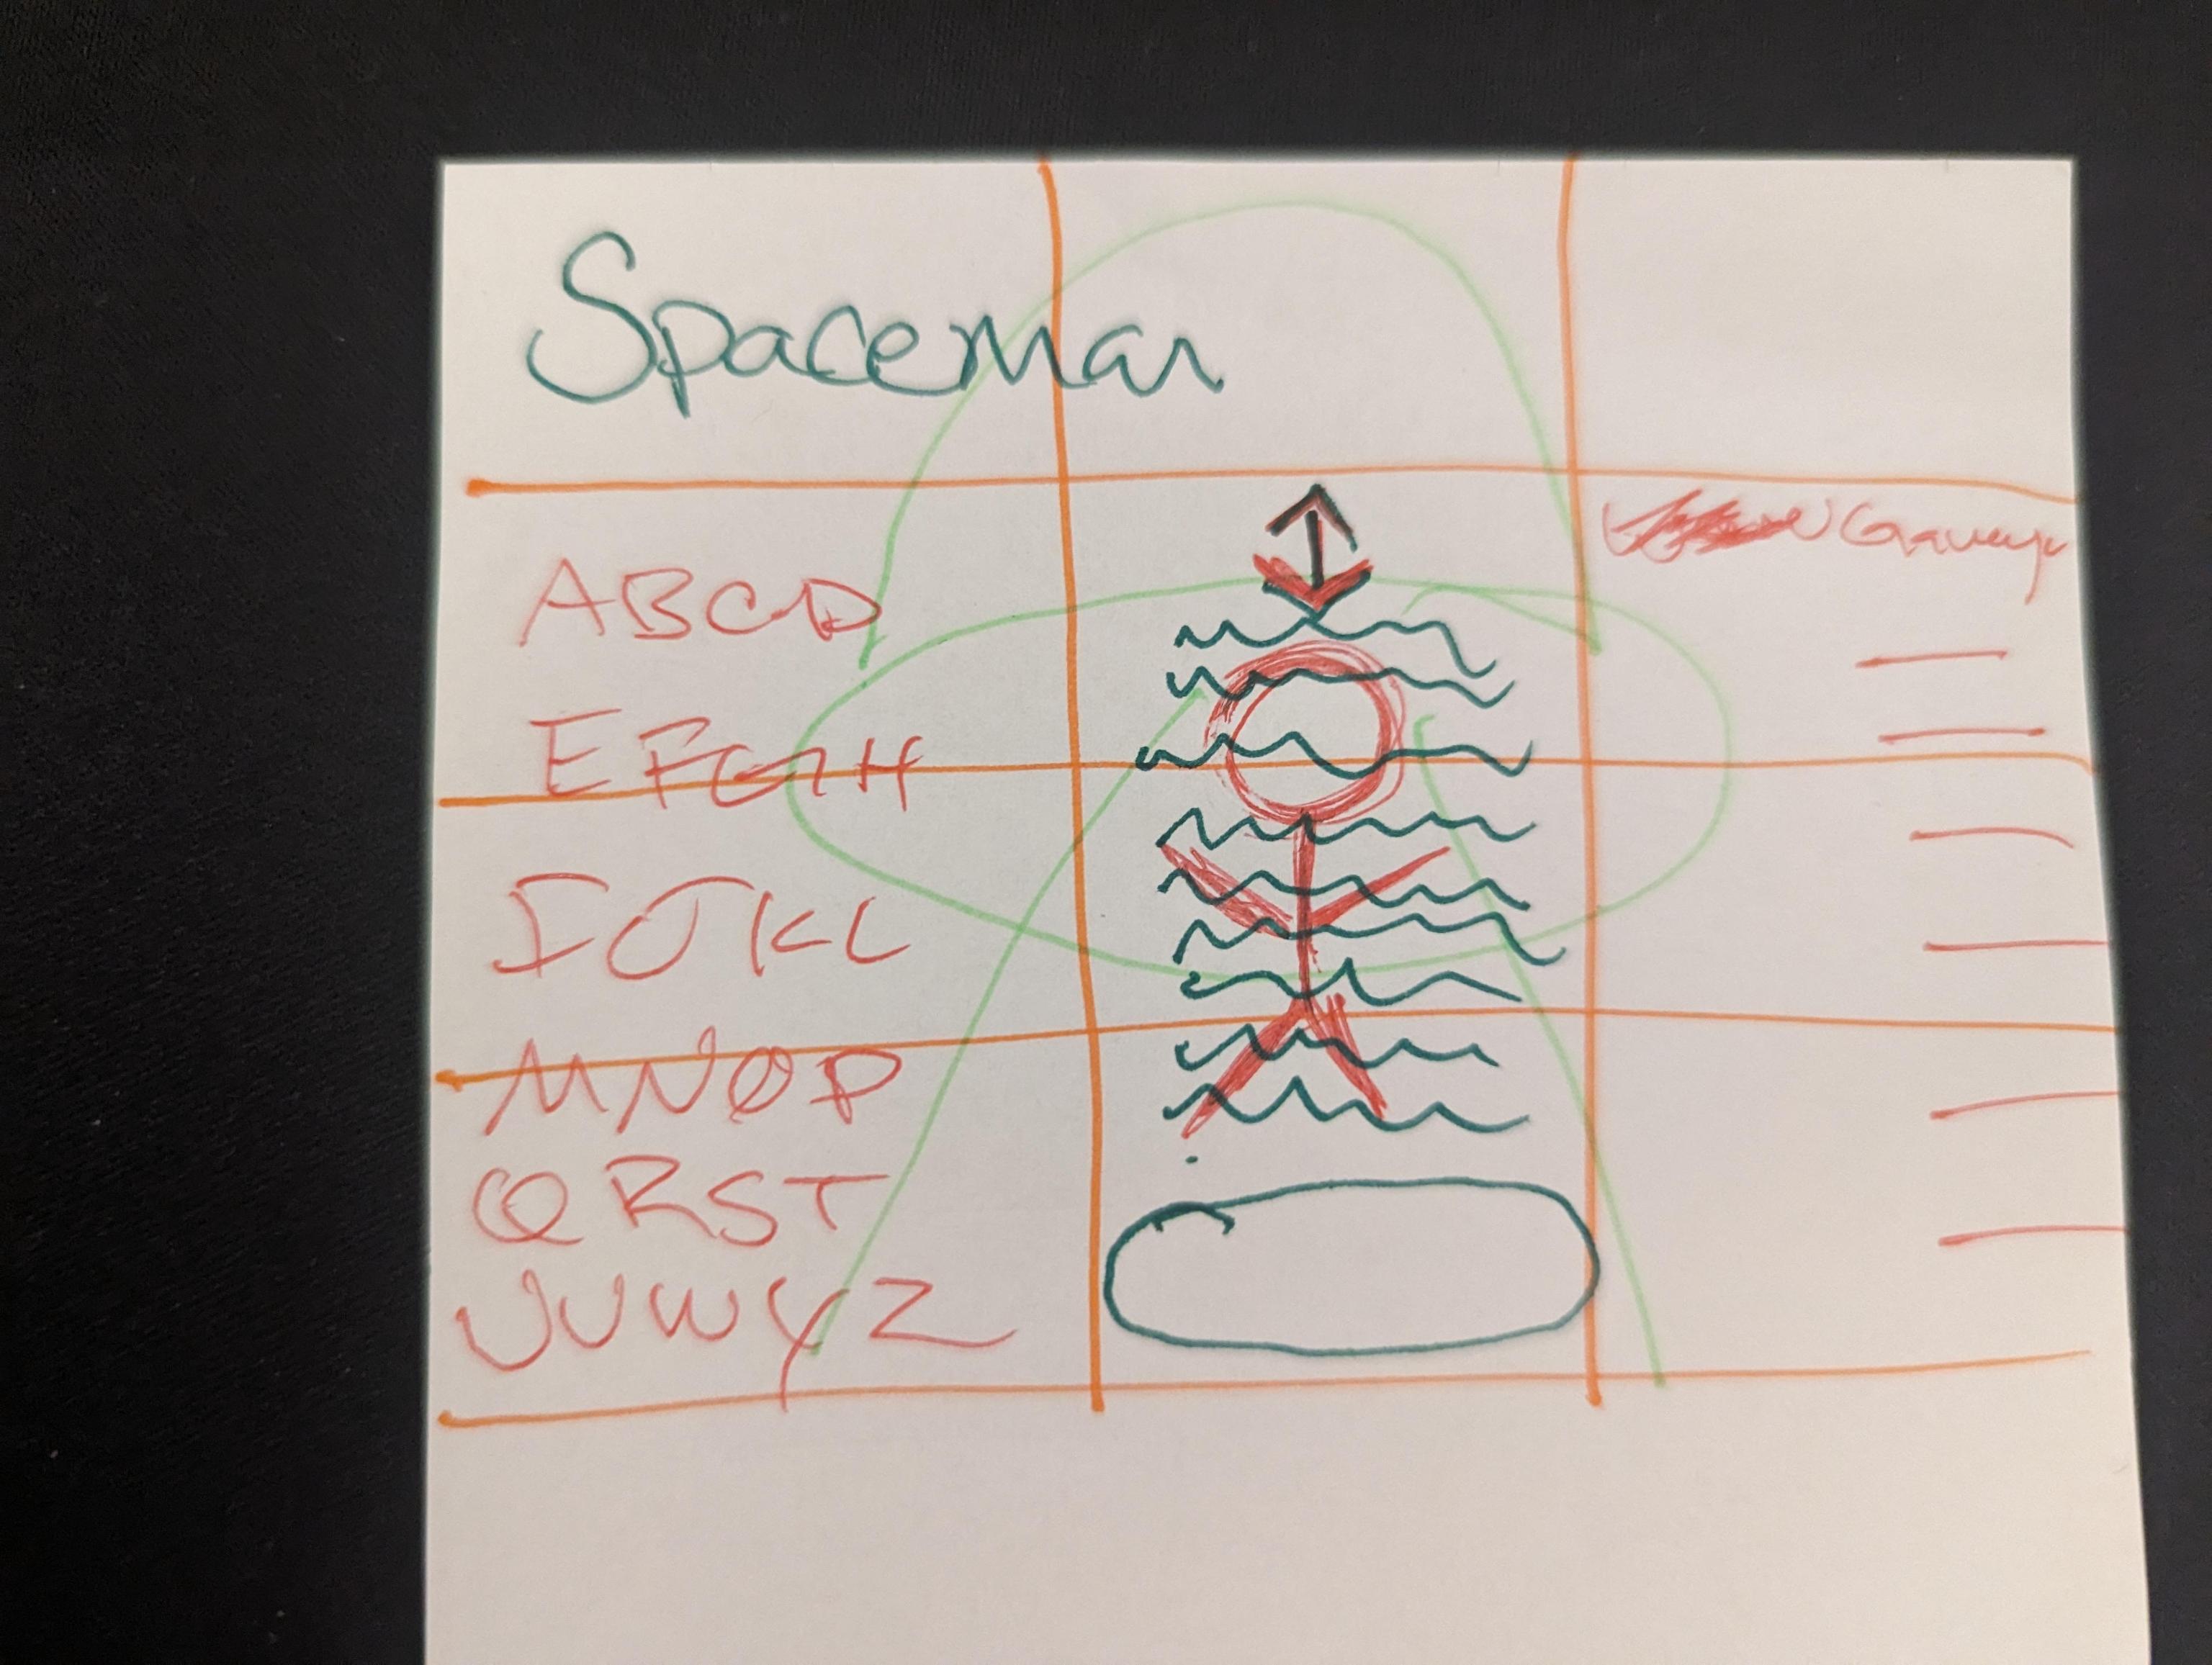 Spaceman
ABCD
EFGH
IJKL
MNOP
QRST
UVWYZ